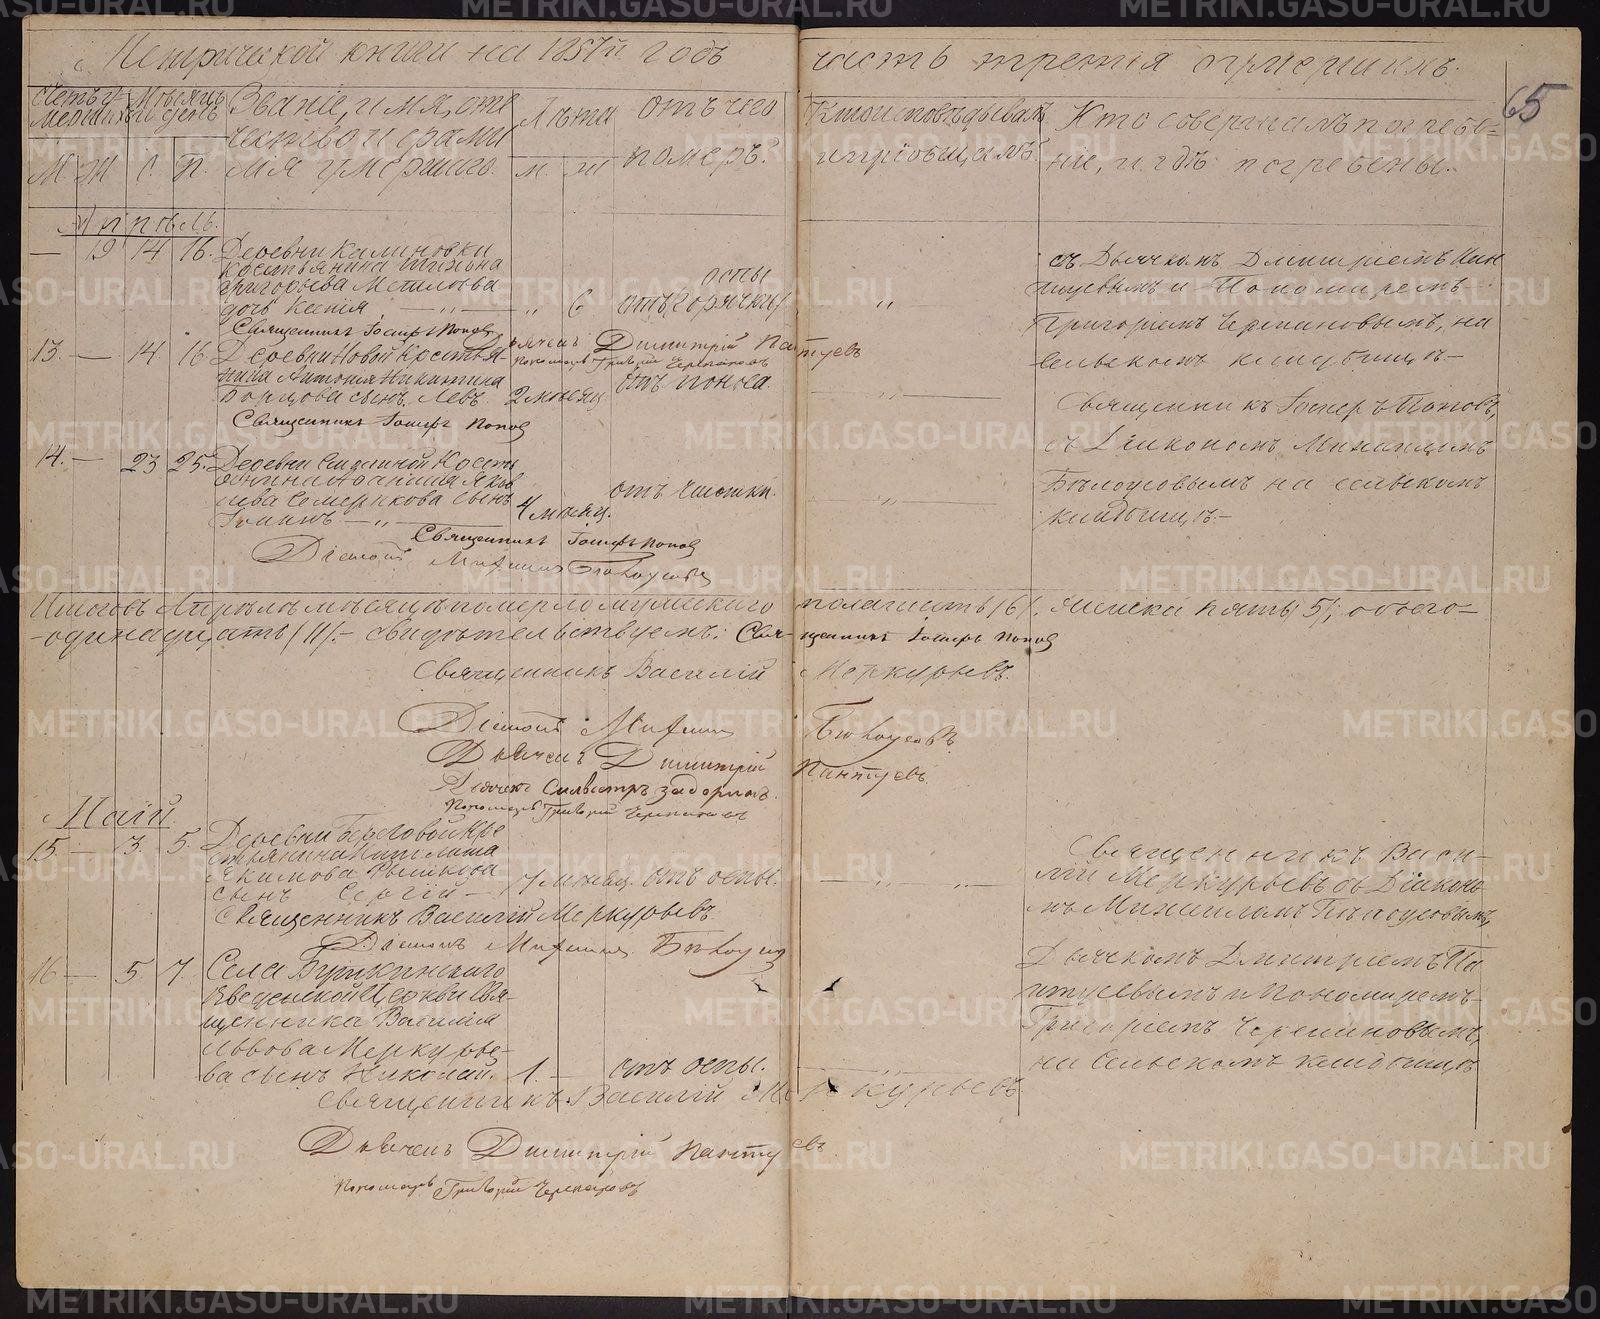 Метрической книги на 1857й годъ часть третія о умершихъ.
65
Счетъ умершихъ
Мѣсяцъ и день
Званіе, имя, отчество и фамилія умершаго.
Лѣта
отъ чего померъ.
Кто исповѣдывалъ и пріобщалъ.
Кто совершалъ погребеніе, и гдѣ погребены.
М. Ж. С. П. м. ж.
Апрѣль.
— 19 14 16. Деревни Калиновки
крестьянина
Григорьева
дочь Ксенія — „ — „ 6 отъ горячки
оспы
съ Дьячкомъ Дмитріемъ Пан
туевымъ и Пономаремъ
Григоріемъ Черепановымъ, на
сельскомъ кладбищѣ—
Священникъ Іосифъ Поповъ
Дьячекъ Димитрій Пантуевъ
Пономарь Григорій Черепановъ
13. — 14 16. Деревни Новой Крестья
нина Антонія Никитина
Борцова сынъ Левъ 2 мѣсяц. отъ поноса.
Священникъ Іосифъ Поповъ,
съ Діакономъ Михаиломъ
Бѣлоусовымъ на сельскомъ
кладбищѣ.—
Священникъ Іосифъ Поповъ
14. — 23 25. Деревни Крест
Яков
лева Семерикова сынъ
Іоаннъ — „ — 4 мѣсяц. отъ
Священникъ Іосифъ Поповъ
Діаконъ Михаилъ Бѣлоусовъ
Итого въ Апрѣлѣ мѣсяцѣ померло мужескаго пола шесть /6/, женска пять /5/, обоего—
одинадцать /11/.— свидѣтельствуемъ: Священникъ Іосифъ Поповъ
Священникъ Василій Меркурьевъ.
Діаконъ Михаилъ Бѣлоусовъ.
Дьячекъ Димитрій Пантуевъ.
Дьячекъ Силвестръ Задоринъ.
Пономарь Григорій Черепановъ
Маій.
15 — 3. 5. Деревни Береговой Кре
стьянина
Якимова
сынъ Сергій — 7 мѣсяц. отъ оспы.
Священникъ Васи-
лій Меркурьевъ съ Діаконо
мъ Михаиломъ Бѣлоусовымъ,
Священникъ Василій Меркурьевъ.
Діаконъ Михаилъ Бѣлоусовъ
16 — 5. 7. Села Буткинскаго
Введенской Церкви Свя-
щенника Василія
Львова Меркурье-
ва сынъ Николай. 1. — отъ оспы.
Дьячкомъ Дмитріемъ Па
нтуевымъ и Пономаремъ
Григоріемъ Черепановымъ,
на Сельскомъ кладбищѣ
Священникъ Василій Меркурьевъ
Дьячекъ Димитрій Пантуевъ
Пономарь Григорій Черепановъ
METRIKI.GASO-URAL.RU